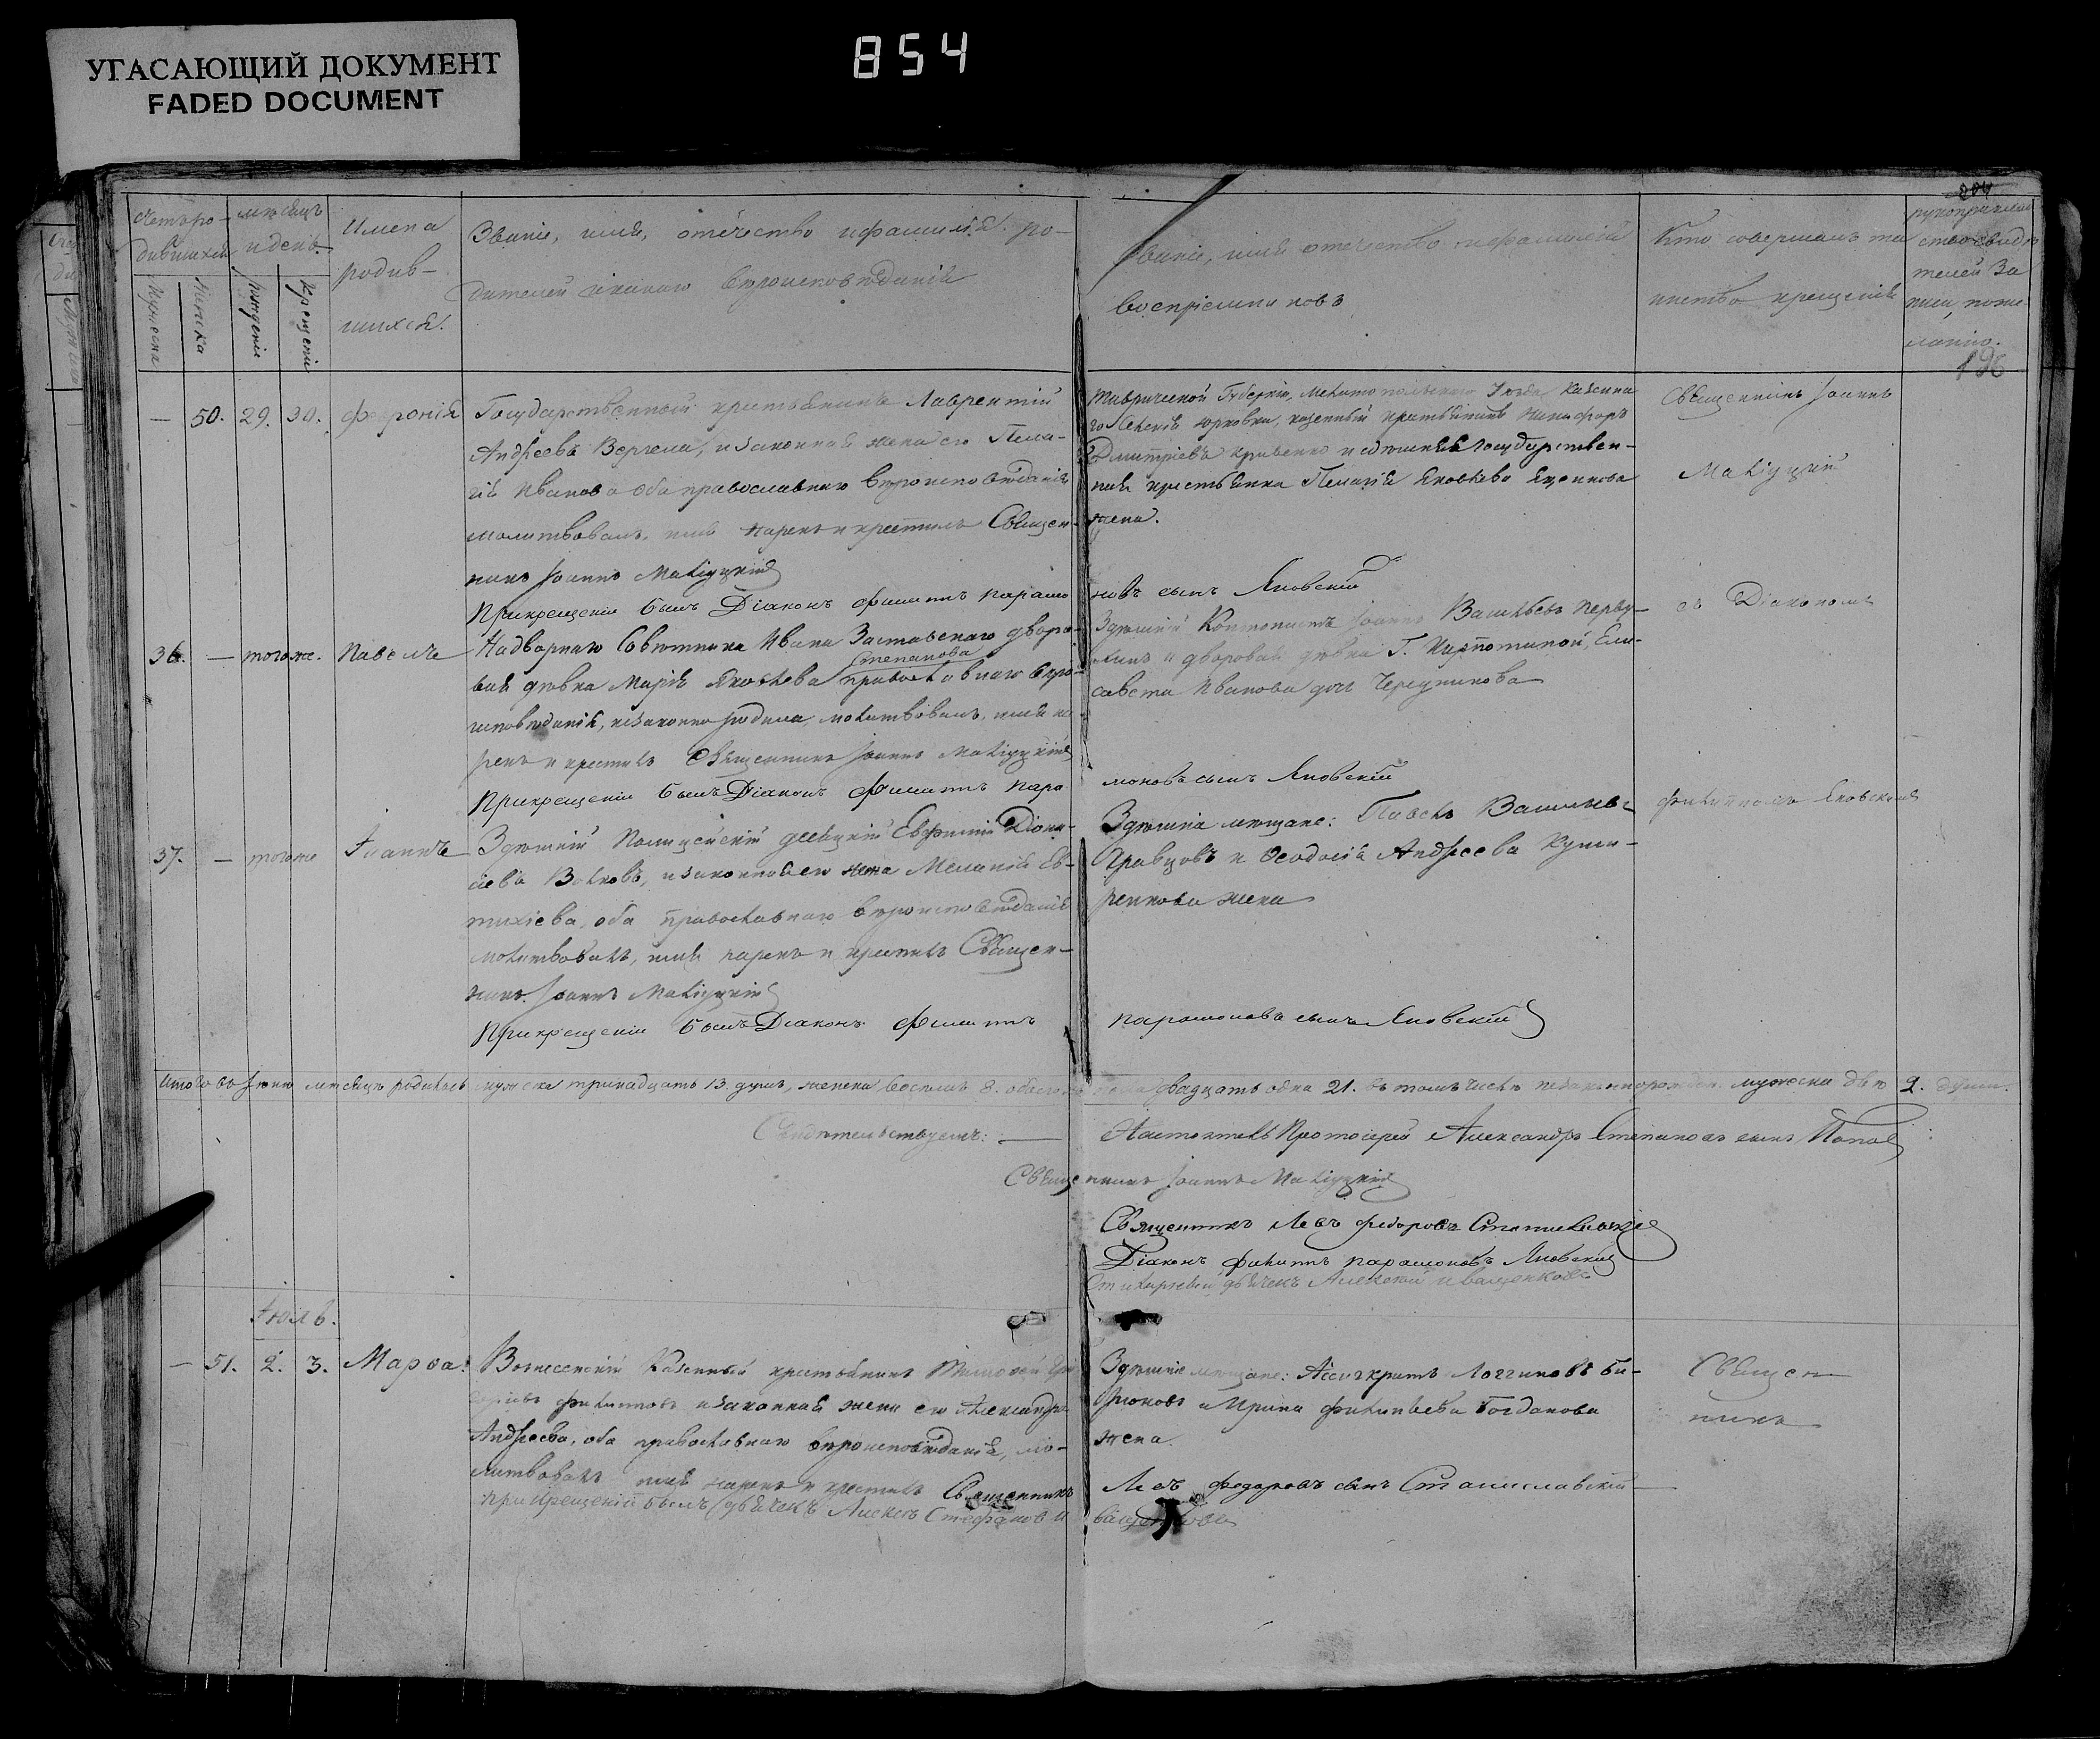 УГАСАЮЩИЙ ДОКУМЕНТ
FADED DOCUMENT
854
Счетъ ро-
дившихся
Мужеска
Женска
мѣсяцъ
и день.
рожденія
Крещенія
Имена
родив-
шихся.
Званіе, имя, отечество и фамилія ро-
дителей и какаго вѣроисповѣданія
Званіе, имя отечество и фамилія
воспріемниковъ
Кто совершалъ та
инство крещенія
рукоприклад
ство свидѣ
телей за
писи, поже
ланію.
196
— 50. 29. 30. Февронія
Государственный крестьянинъ Лаврентій
Андреевъ Вергела, и законная жена его Пела-
гія Иванова оба православнаго вѣроисповѣданія
молитвовалъ, имя нарекъ и крестилъ Священ-
никъ Іоаннъ Макіуцкій
При крещеніи былъ Діаконъ Филиппъ Парамо
Таврической Губерніи, Мелитопольскаго Уѣзда, Казенна
го Селенія Юрковки, казенный крестьянинъ Никифоръ
Дмитріевъ и здѣшняя Государствен-
ная крестьянка Пелагія Яковлева
жена.
новъ сынъ Яновскій
Священникъ Іоаннъ
Макіуцкій
36. — тогоже. Павелъ
Надворнаго Совѣтника Ивана Заставскаго дворо-
вая дѣвка Марія Яковлева православнаго вѣро-
Степанова
исповѣданія, незаконно родила, молитвовалъ, имя на
рекъ и крестилъ Священникъ Іоаннъ Макіуцкій
При крещеніи былъ Діаконъ Филиппъ Пара
Здѣшній Іоаннъ Васильевъ Перву-
хинъ и дворовая дѣвка Г. Кирпотиной, Ели-
савета Иванова дочь
моновъ сынъ Яновскій
съ Діакономъ
37. — тогоже Іоаннъ
Здѣшній Полицейскій десяцкій Евфимій Діони-
сіевъ Волковъ, и законная его жена Меланія Ев-
тихіева, оба православнаго вѣроисповѣданія
молитвовалъ, имя нарекъ и крестилъ Священ-
никъ Іоаннъ Макіуцкій
При крещеніи былъ Діаконъ Филиппъ
Здѣшніе мещане: Павелъ Васильевъ
Кравцовъ и Ѳеодосія Андреева
жена
Парамоновъ сынъ Яновскій
Филиппомъ Яновскимъ
Итого въ Іюнѣ мѣсяцѣ родилось мужеска тринадцать 13. душъ, женска восемь 8. обоего двадцать одна 21. въ томъ числѣ незаконнорожден. мужеска двѣ 2. души.
Свидѣтельствуемъ: —
Настоятель Протоіерей Александръ Степановъ сынъ Поповъ
Священникъ Іоаннъ Макіуцкій
Священникъ Левъ Федоровъ Станиславскій
Діаконъ Филиппъ Парамоновъ Яновскій
Стихарный дьячекъ Алексей Иващенковъ
Іюль.
— 51. 2. 3. Марѳа.
Вознесенскій Казенный крестьянинъ Тимоѳей
Филиповъ и законная жена его Александра
Андреева, оба православнаго вѣроисповѣданія, мо-
литвовалъ имя нарекъ и крестилъ Священникъ
При крещеніи былъ дьячекъ Алексѣ Стефановъ И
Здѣшніе мещане: Ассигкритъ Логгиновъ Би-
рюковъ и Ирина Филипьева Богданова
жена.
Левъ Федоровъ сынъ Станиславскій
ващенковъ
Священ
никъ